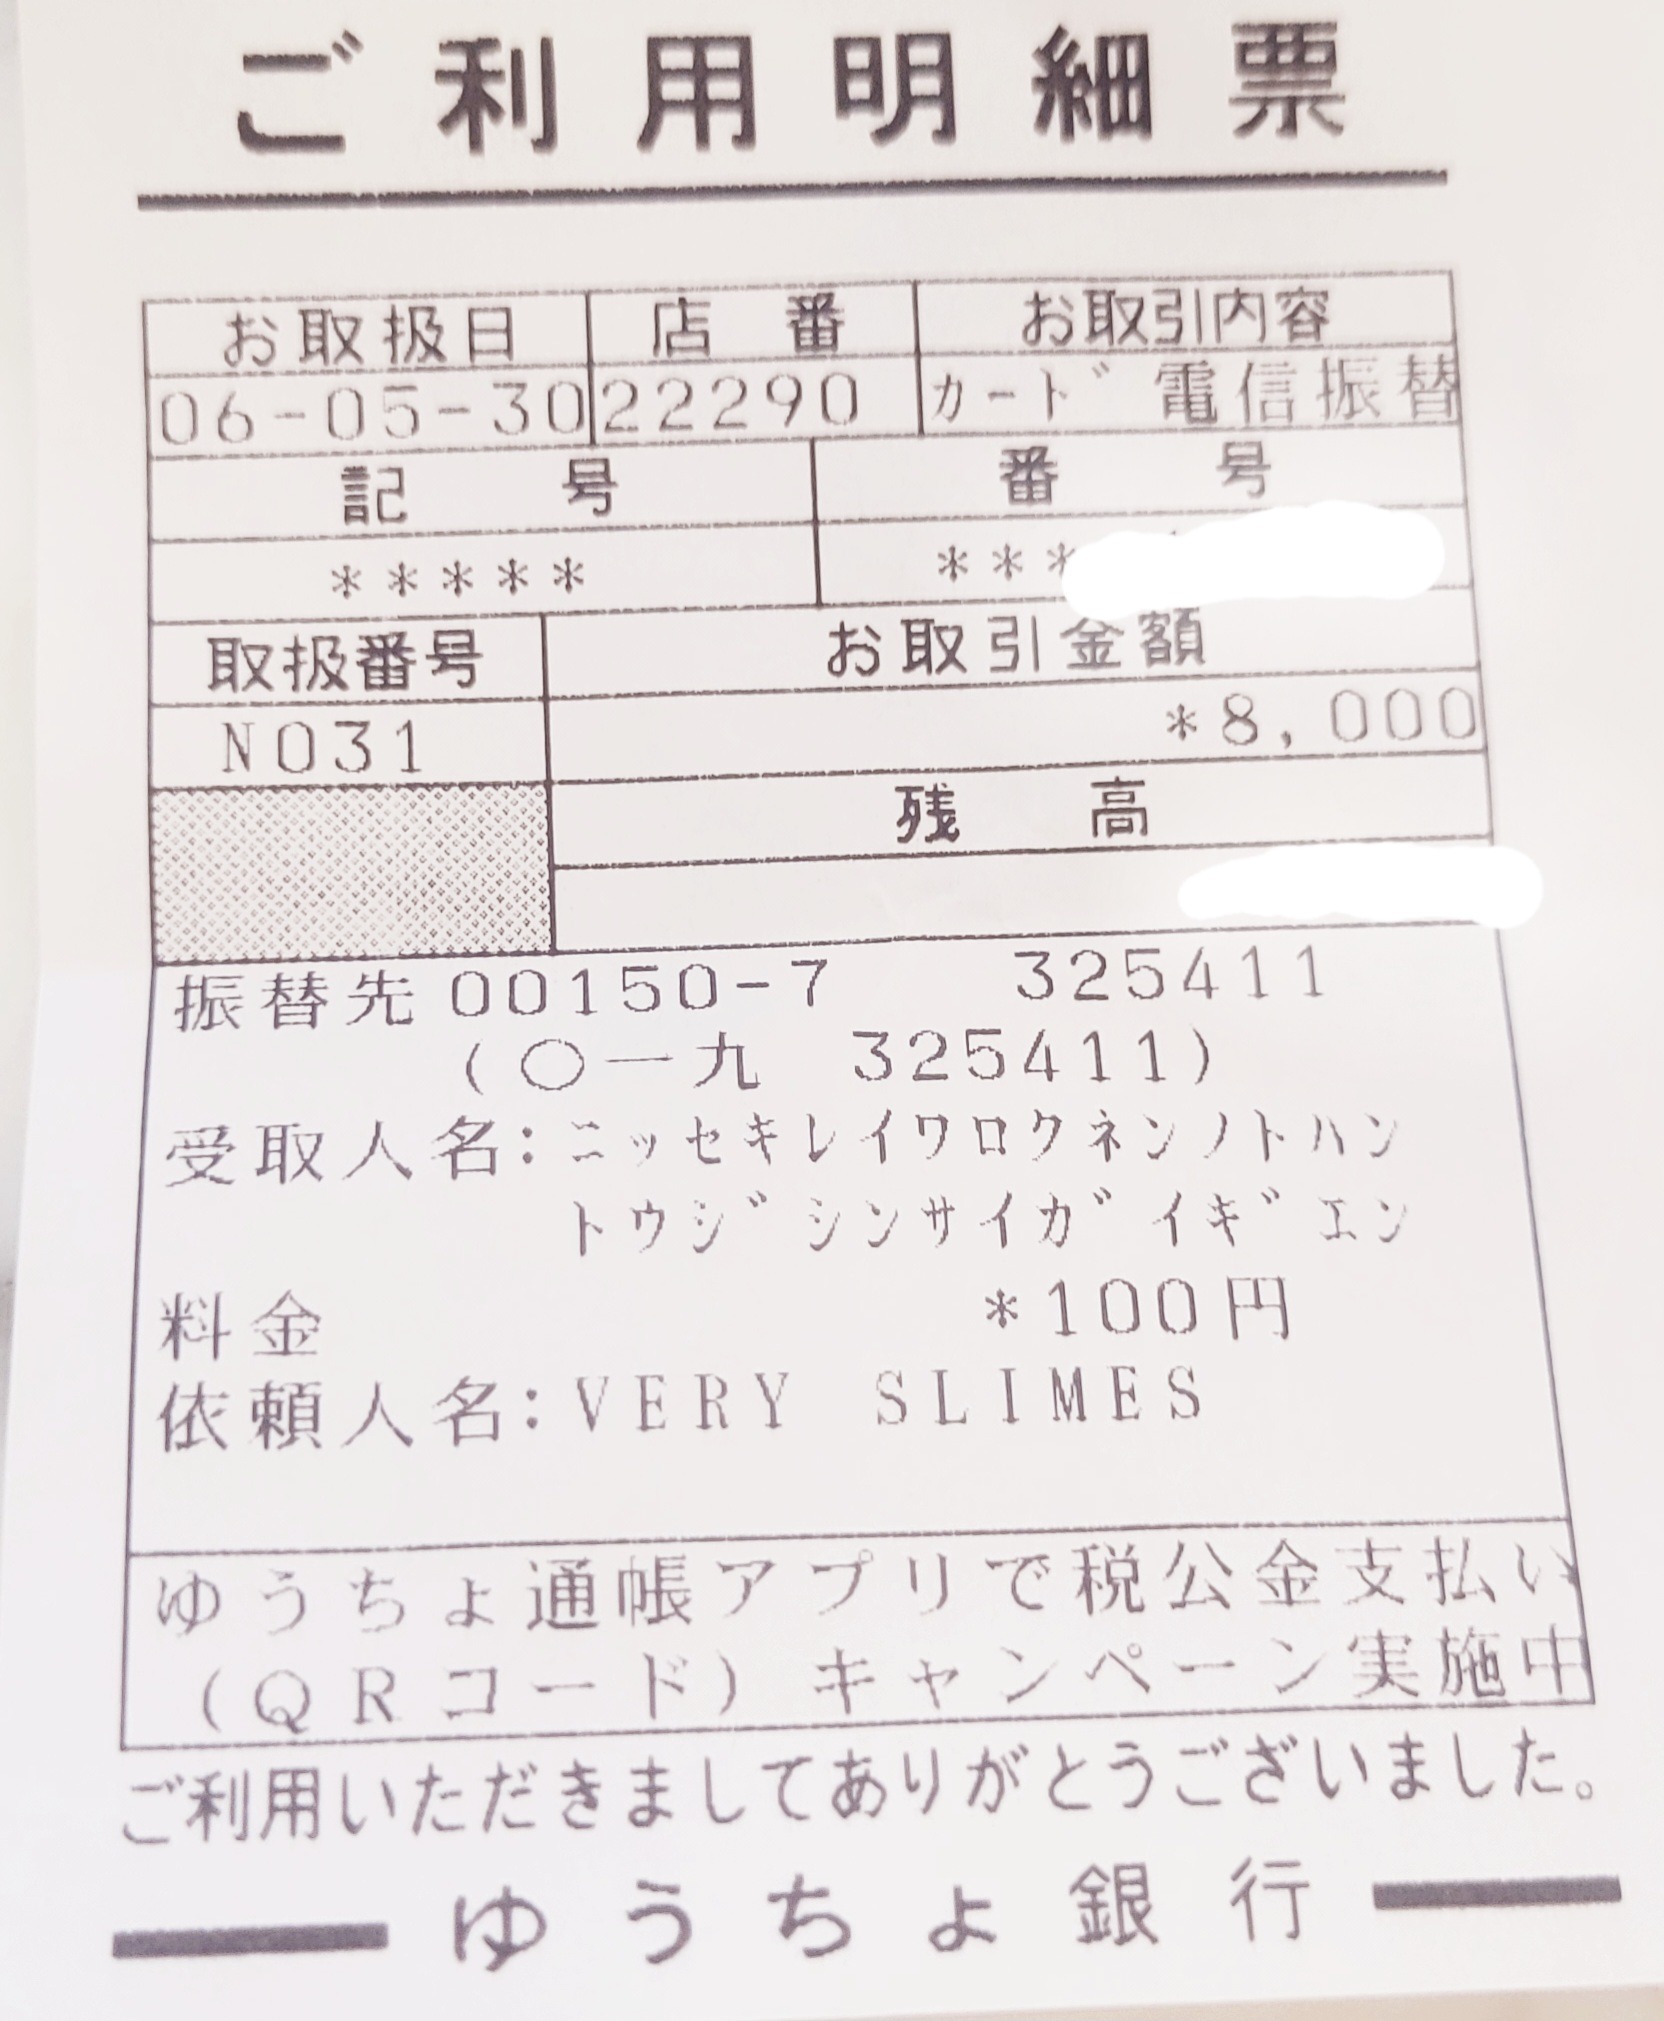 ご利用明細票
お取扱日 店番 お取引内容
06-05-30 22290 カード 電信振替
記号 番号
***** ***
取扱番号 お取引金額
N031 *8,000
残高
振替先 00150-7 325411
(〇一九 325411)
受取人名:ニッセキレイワロクネンノトハン
トウジシンサイガイギエン
料金 *100円
依頼人名:VERY SLIMES
ゆうちょ通帳アプリで税公金支払い
(QRコード)キャンペーン実施中
ご利用いただきましてありがとうございました。
ゆうちょ銀行